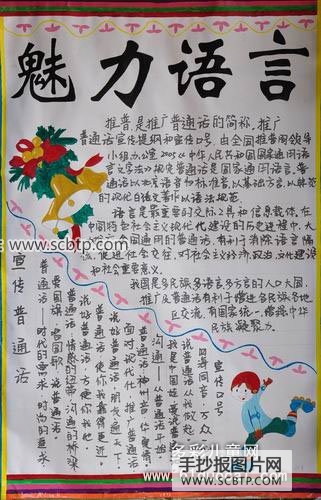 魅力语言
推普是推广普通话的简称，推广
普通话宣传提纲和宣传口号，由全国推普周领导
小组办公室2005《中华人民共和国国家通用语
言文字法》规定普通话是国家通用语言。普
通话以北京语音为标准音，以
的现代白话文著作以语法规范。
语言是最重要的交际工具和信息载体。在
中国特色社会主义现代化建设的历史进程中，大
通用的普通话，有利于消除语言隔
促进社会交往，对社会主义经济、政治、文化建设
和社会重要意义。
我国是多民族多语言多方言的人口大国，
推广及普通话有利于增进各民族各地
区交流，有国家统一，
民族凝聚力。
宣传口号
四海同音，万众一心
我是中国娃，爱说普通话
说普通话从我做起
沟通——从普通话开始
普通话，神州音，华夏情
面对现代化，推广普通话
说好普通话，朋友遍天下
普通话，使你我靠得更近
说好普通话，方便你我他
普通话——情感的纽带，沟通的桥梁
爱国旗，唱国歌，说普通话
普通话——时代的需求，时尚的追求
宣传普通话
www.scbtp.com
多彩儿童网
手抄报图片网
WWW.SCBTP.COM